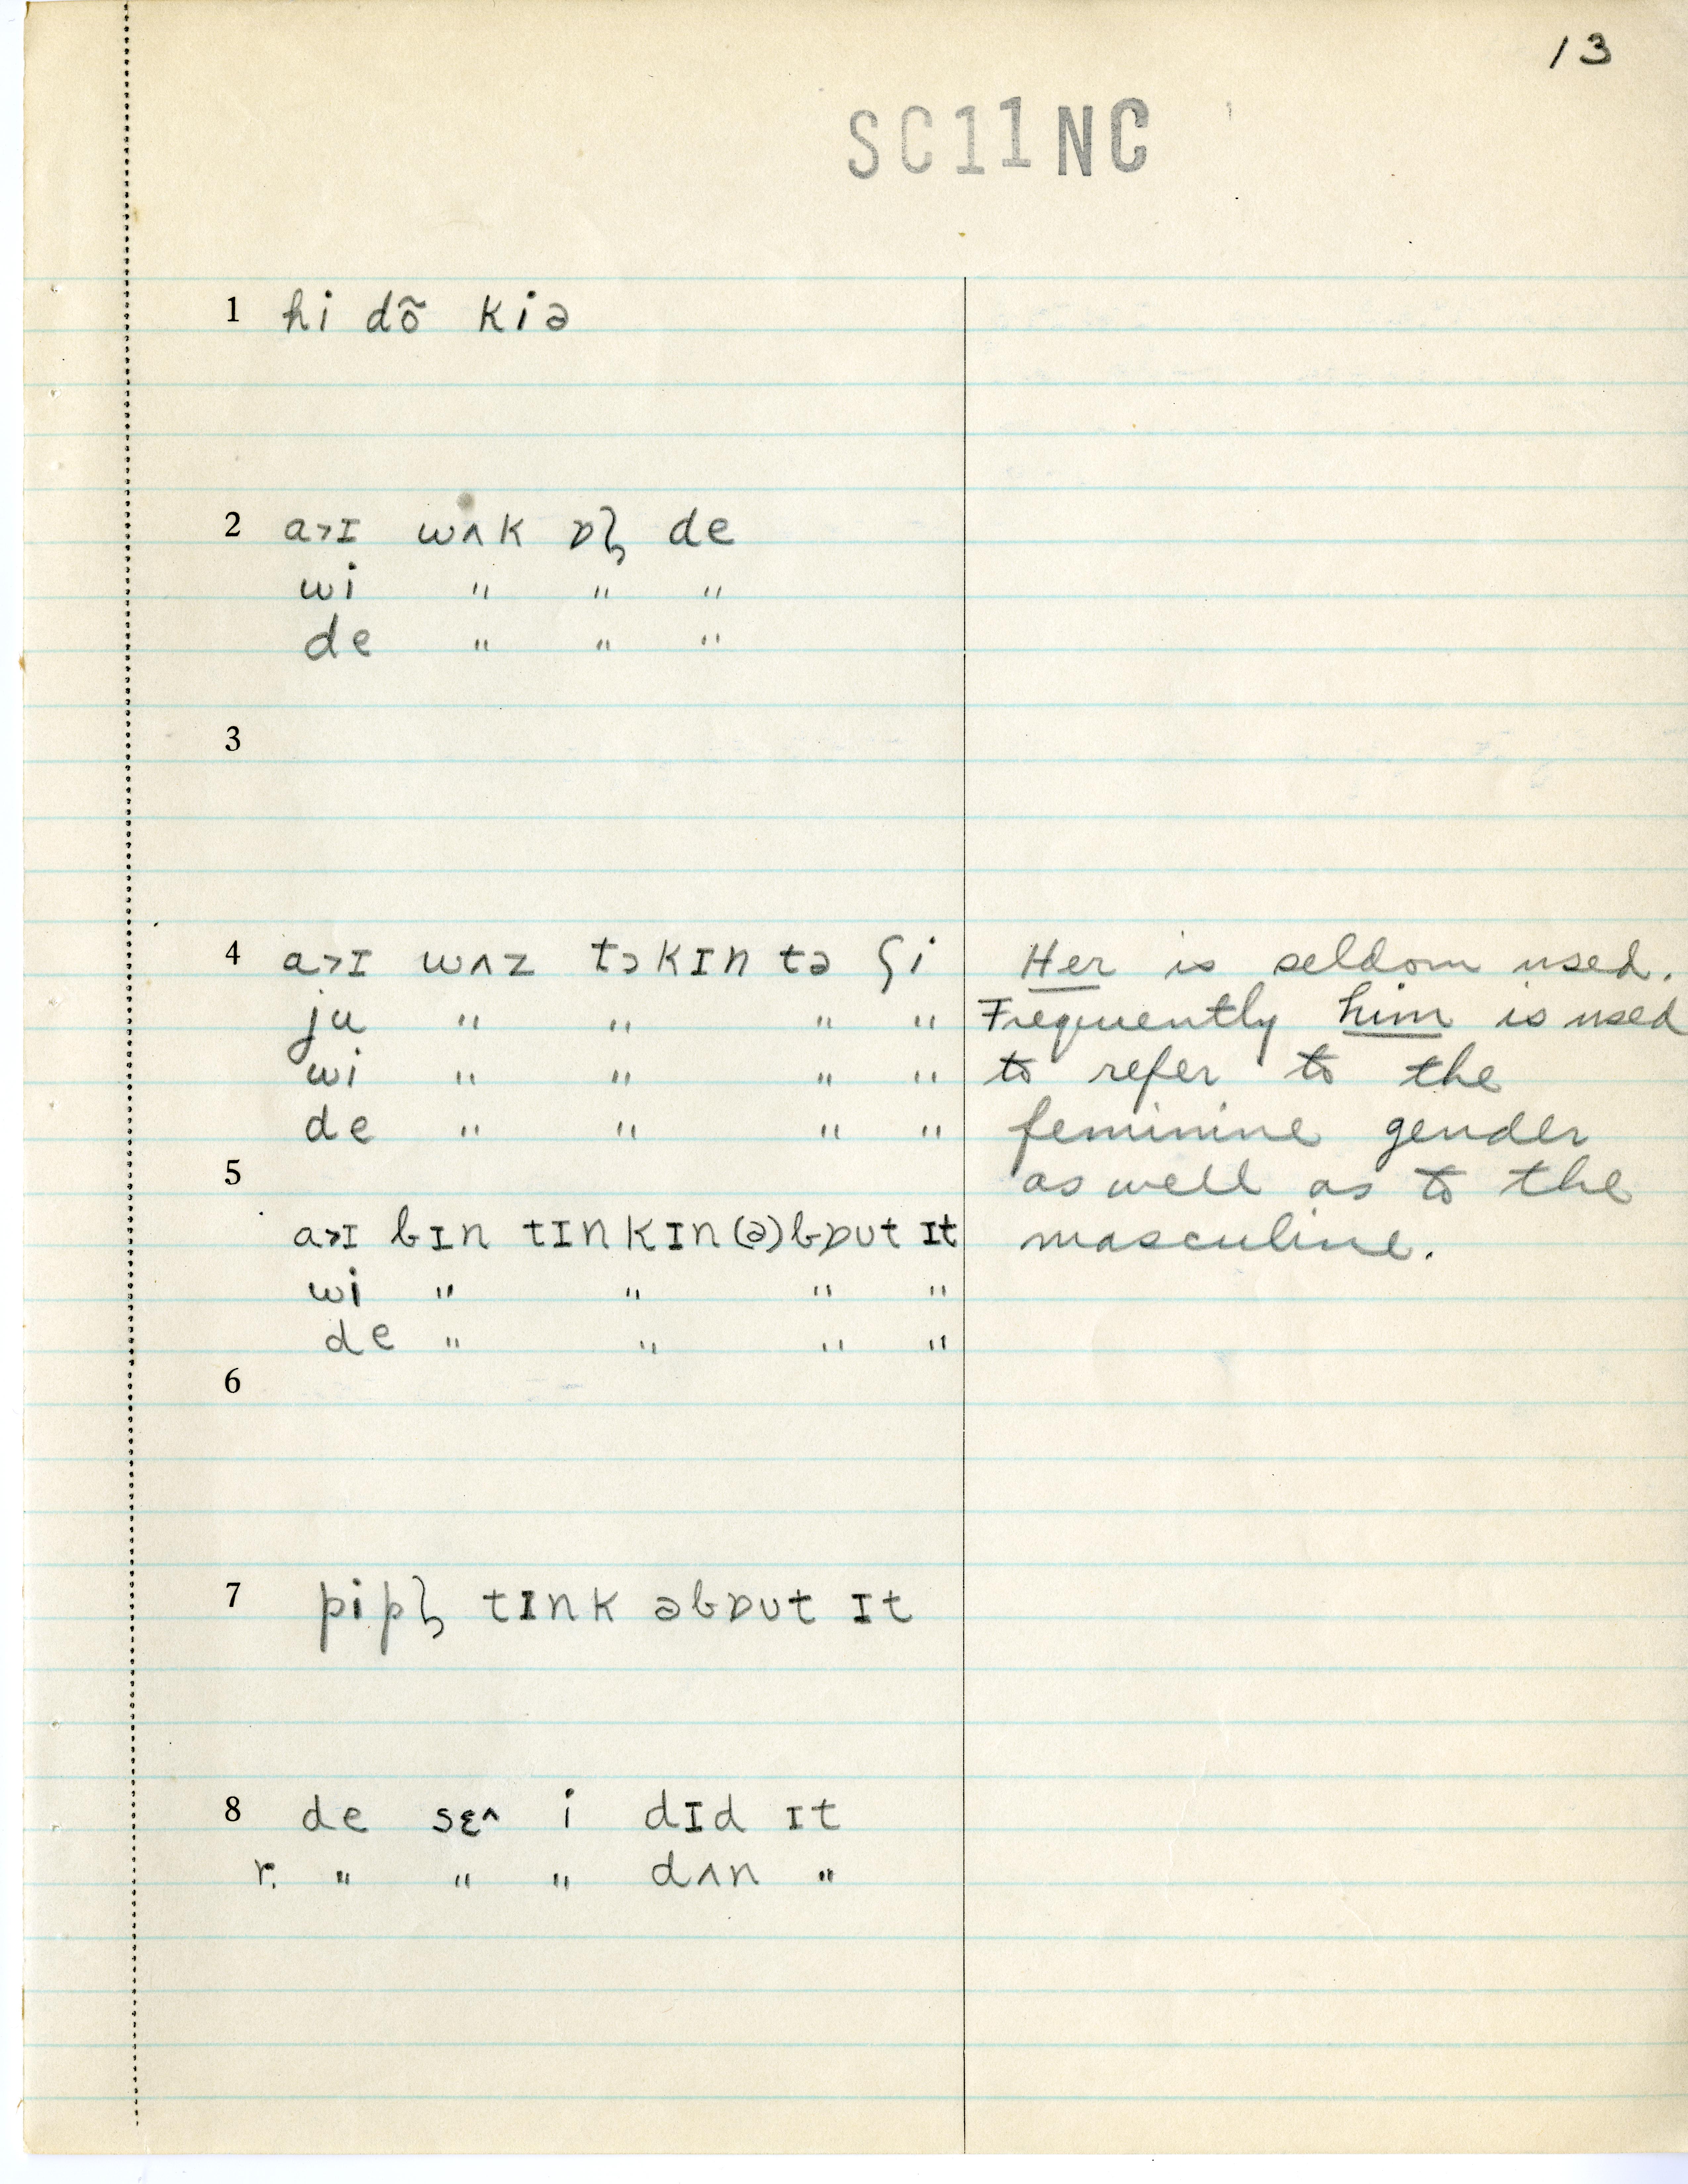 13
SC11NC
1 hi dõ kiə
2 a˃ɪ wʌk ɒɫ de
wi " " "
de " " "
3
4 a˃ɪ wʌz tɔkɪn tə ʃi Her is seldom used.
ju " " " " Frequently him is used
wi " " " " to refer to the
de " " " " feminine gender
5 as well as to the
a˃ɪ bɪn tɪnkɪn (ə)bɒut ɪt masculine.
wi " " " "
de " " " "
6
7 pipɫ tɪnk əbɒut ɪt
8 de sɛ^ i dɪd ɪt
r. " " " dʌn "